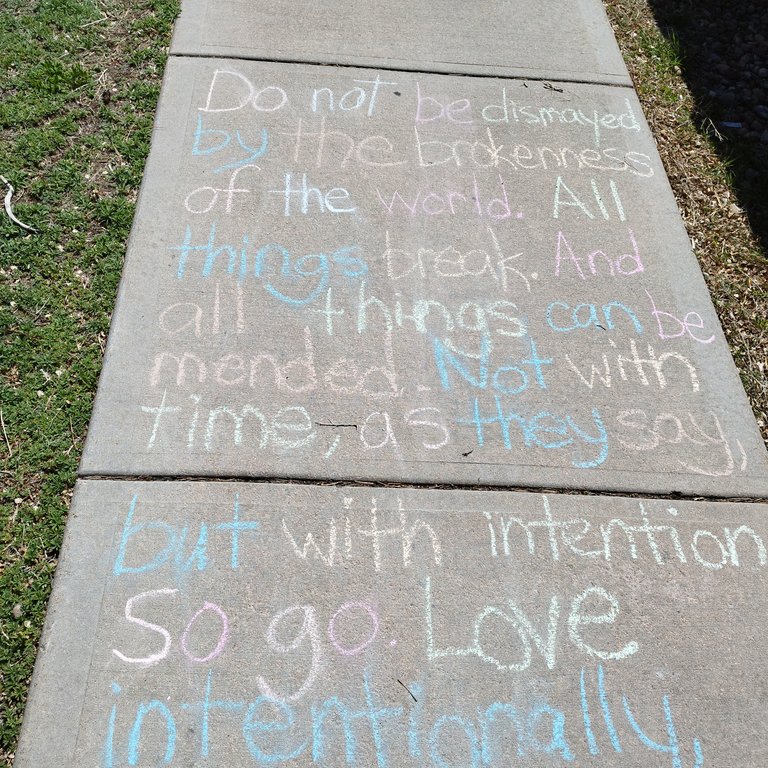 Do not be dismayed
by the brokenness
of the world. All
things break. And
all things can be
mended. Not with
time, as they say,
but with intention
So go. Love
intentionally,